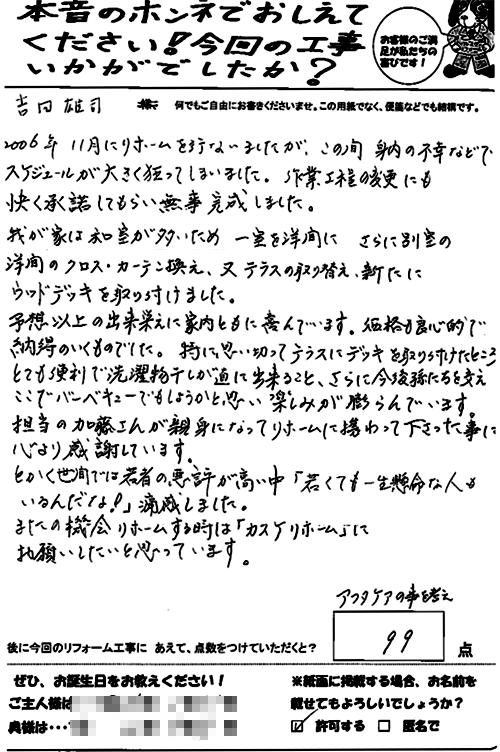 本音のホンネでおしえて
ください！今回の工事
いかがでしたか？
お客様のご満
足が私たちの
喜びです！
吉田 雄司 様 何でもご自由にお書きくださいませ。この用紙でなく、便箋などでも結構です。
2006年 11月にリホームを行ないましたが、この間 身内の不幸などで
スケジュールが大きく狂ってしまいました。作業工程の変更にも
快く承諾してもらい無事完成しました。
我が家は和室が多いため 一室を洋間に さらに別室の
洋間のクロス・カーテン換え、又テラスの取り替え、新たに
ウッドデッキを取り付けました。
予想以上の出来栄えに家内ともに喜んでいます。価格も良心的で
納得のいくものでした。特に思い切ってテラスにデッキを取り付けたところ
とても便利で洗濯物干しが直に出来ること、さらに今後孫たちを交え
ここでバーベキューでもしようかと思い楽しみが膨らんでいます。
担当の加藤さんが親身になってリホームに携わって下さった事に
心より感謝しています。
とかく世間では若者の悪評が高い中「若くても一生懸命な人も
いるんだな！」痛感しました。
またの機会リホームする時は「カスケリホーム」に
お願いしたいと思っています。
アフタケアの事を考え
後に今回のリフォーム工事に あえて、点数をつけていただくと？ 99 点
ぜひ、お誕生日をお教えください！
ご主人様は
奥様は…
※紙面に掲載する場合、お名前を
載せてもよろしいでしょうか？
☑ 許可する □ 匿名で